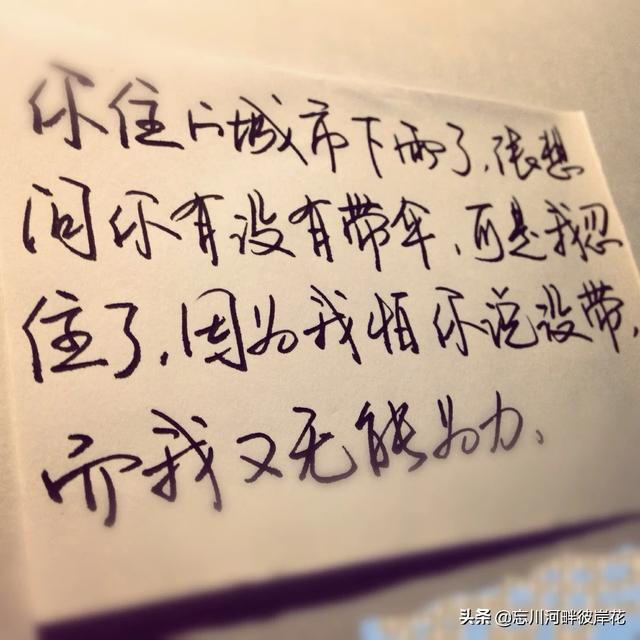 你住的城市下雨了，很想
问你有没有带伞，可是我忍
住了，因为我怕你说没带，
而我又无能为力、
头条 @忘川河畔彼岸花